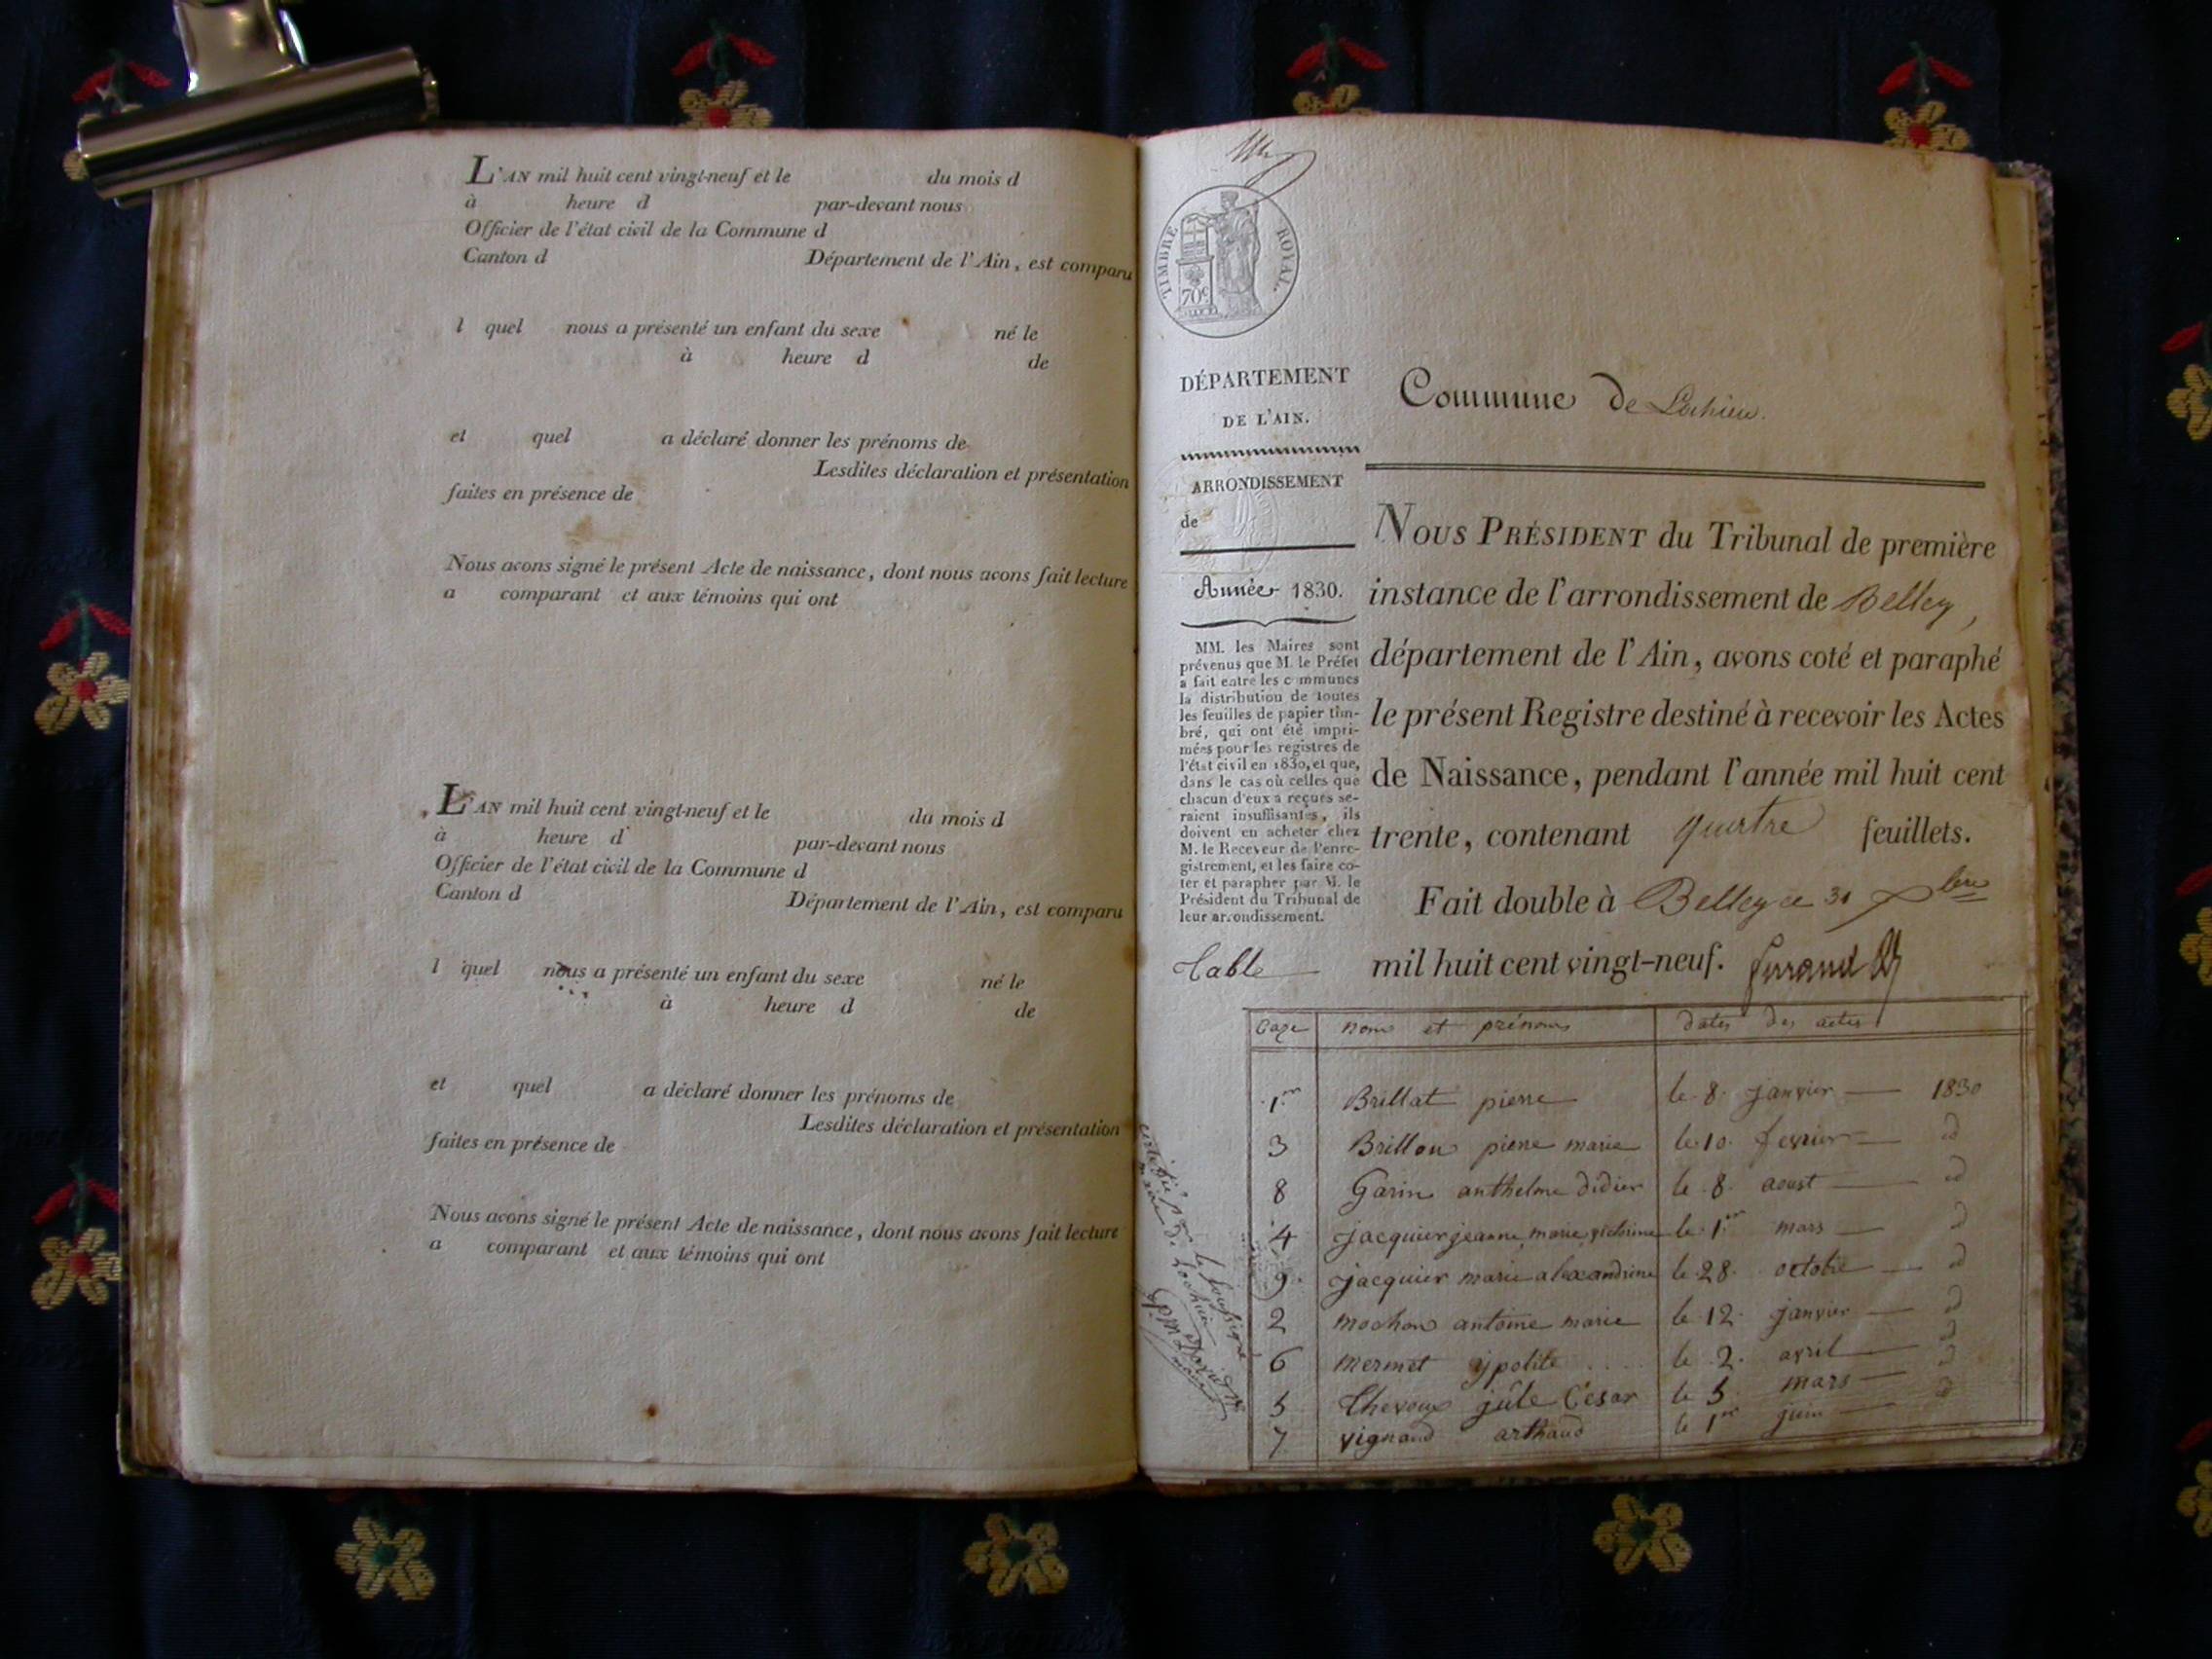 L'AN mil huit cent vingt-neuf et le du mois d
à heure d par-devant nous
Officier de l'état civil de la Commune d
Canton d Département de l'Ain, est comparu
l quel nous a présenté un enfant du sexe né le
à heure d de
et quel a déclaré donner les prénoms de
Lesdites déclaration et présentation
faites en présence de
Nous avons signé le présent Acte de naissance, dont nous avons fait lecture
a comparant et aux témoins qui ont
L'AN mil huit cent vingt-neuf et le du mois d
à heure d par-devant nous
Officier de l'état civil de la Commune d
Canton d Département de l'Ain, est comparu
l quel nous a présenté un enfant du sexe né le
à heure d de
et quel a déclaré donner les prénoms de
Lesdites déclaration et présentation
faites en présence de
Nous avons signé le présent Acte de naissance, dont nous avons fait lecture
a comparant et aux témoins qui ont
TIMBRE ROYAL
70c
DÉPARTEMENT
DE L'AIN.
ARRONDISSEMENT
de
Année 1830.
MM. les Maires sont
prévenus que M. le Préfet
a fait entre les c mmunes
la distribution de toutes
les feuilles de papier tim-
bré, qui ont été impri-
mées pour les registres de
l'état civil en 1830, et que,
dans le cas où celles que
chacun d'eux a reçues se-
raient insuffisantes, ils
doivent en acheter chez
M. le Receveur de l'enre-
gistrement, et les faire co-
ter et parapher par M. le
Président du Tribunal de
leur arrondissement.
Commune de Lochieu.
NOUS PRÉSIDENT du Tribunal de première
instance de l'arrondissement de Belley,
département de l'Ain, avons coté et paraphé
le présent Registre destiné à recevoir les Actes
de Naissance, pendant l'année mil huit cent
trente, contenant quatre feuillets.
Fait double à Belley ce 31 xbre
mil huit cent vingt-neuf.
Table
Page nom et prénoms dates des actes
1er Brillat pierre le 8 janvier 1830
3 Brillon pierre marie le 10 fevrier id
8 Garin anthelme didier le 8 aoust id
4 jacquier jeanne marie victorine le 1er mars id
9 jacquier marie alexandrine le 28 octobre id
2 mochon antoine marie le 12 janvier id
6 mermet ypolite le 2 avril id
5 Thevoux jûle César le 5 mars id
7 vignaud arthaud le 1er juin id
certifié par le soussigné
maire de Lochieu